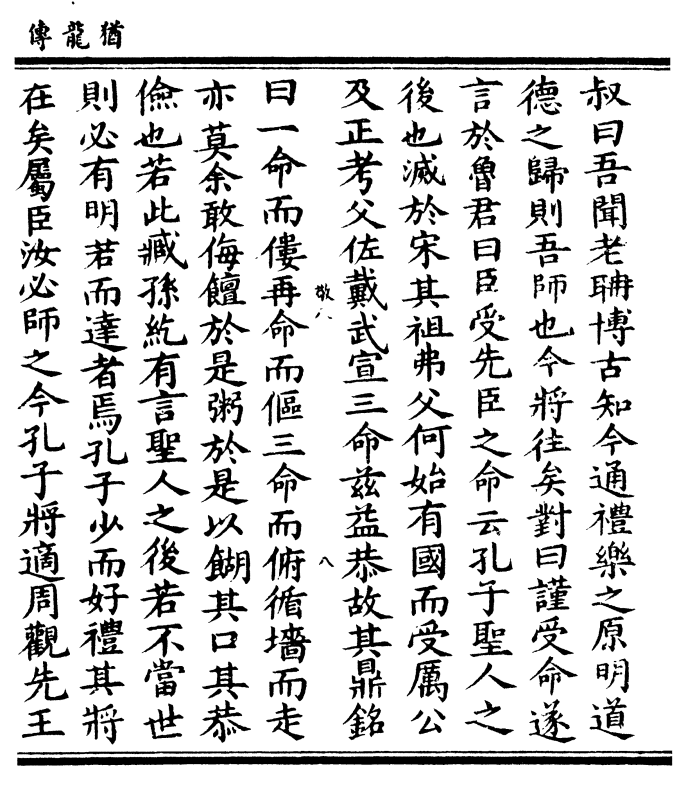 猶龍傳
叔曰吾聞老聃博古知今通禮樂之原明道
德之歸則吾師也今將往矣對曰謹受命遂
言於魯君曰臣受先臣之命云孔子聖人之
後也滅於宋其祖弗父何始有國而受厲公
及正考父佐戴武宣三命茲益恭故其鼎銘
敬八
八
曰一命而僂再命而傴三命而俯循墻而走
亦莫余敢侮饘於是粥於是以餬其口其恭
儉也若此臧孫紇有言聖人之後若不當世
則必有明若而達者焉孔子少而好禮其將
在矣屬臣汝必師之今孔子將適周觀先王